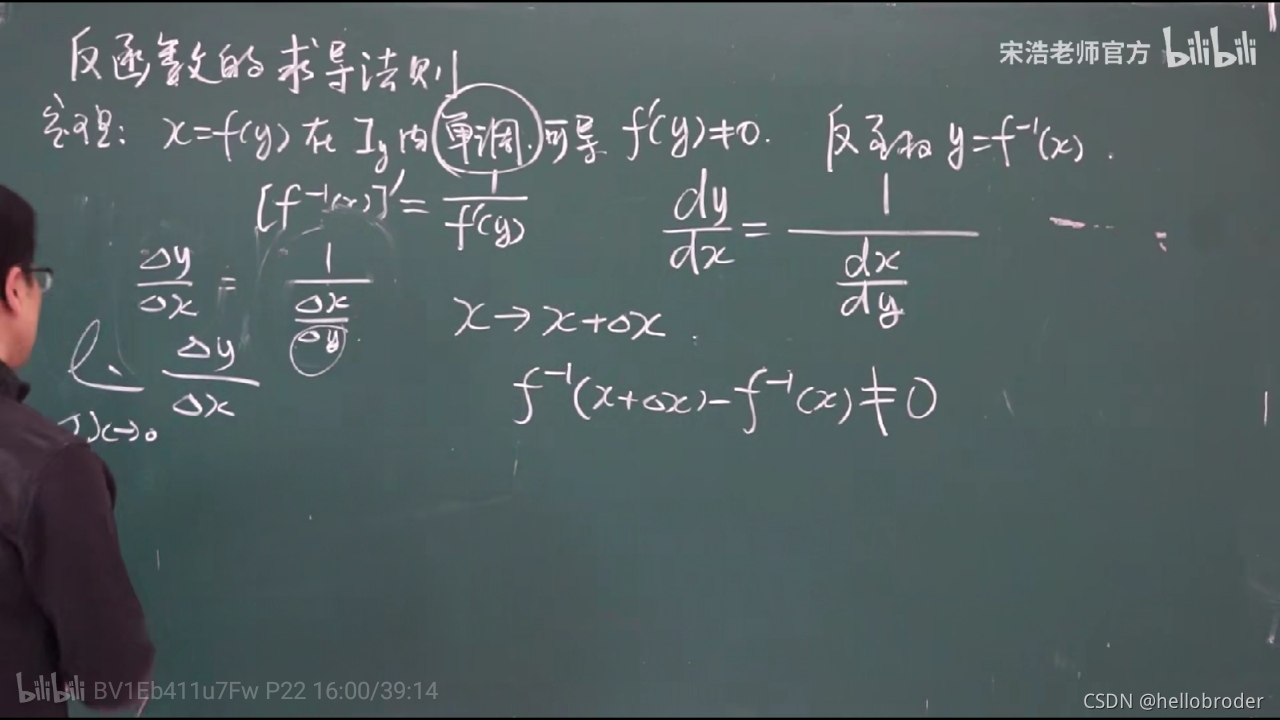 宋浩老师官方 bilibili
反函数的求导法则
定理: x=f(y) 在 I_y 内单调.可导 f'(y)≠0. 反函数 y=f^{-1}(x).
[f^{-1}(x)]' = 1/f'(y) dy/dx = 1/(dx/dy)
Δy/Δx = 1/(Δx/Δy) x→x+Δx.
Δy/Δx f^{-1}(x+Δx)-f^{-1}(x)≠0
bilibili BV1Eb411u7Fw P22 16:00/39:14
CSDN @hellobroder